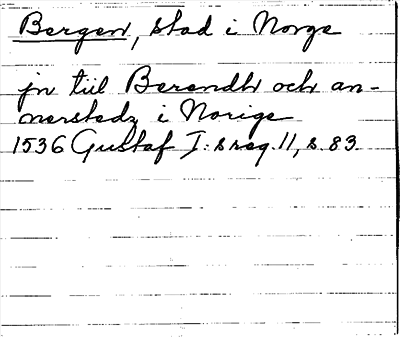 Bergen, stad i Norge
jn till Berendh och an-
nerstedz i Norige
1536 Gustaf I:s reg. 11, s. 83.